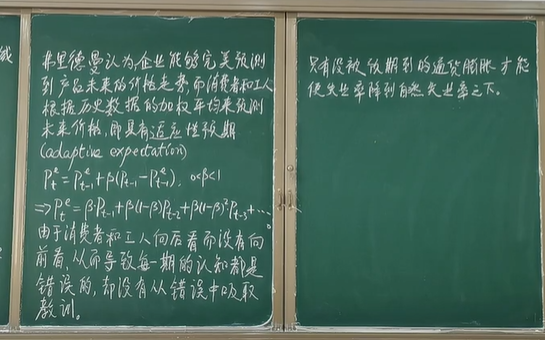 弗里德曼认为,企业能够完美预测
到产品未来的价格走势,而消费者和工人
根据历史数据的加权平均来预测
未来价格,即具有适应性预期
(adaptive expectation)
Pₜᵉ = Pₜ₋₁ᵉ + β(Pₜ₋₁ − Pₜ₋₁ᵉ), 0<β<1
⇒ Pₜᵉ = β·Pₜ₋₁ + β(1−β)Pₜ₋₂ + β(1−β)²Pₜ₋₃ + …。
由于消费者和工人向后看而没有向
前看,从而导致每一期的认知都是
错误的,却没有从错误中吸取
教训。
只有没被预期到的通货膨胀才能
使失业率降到自然失业率之下。